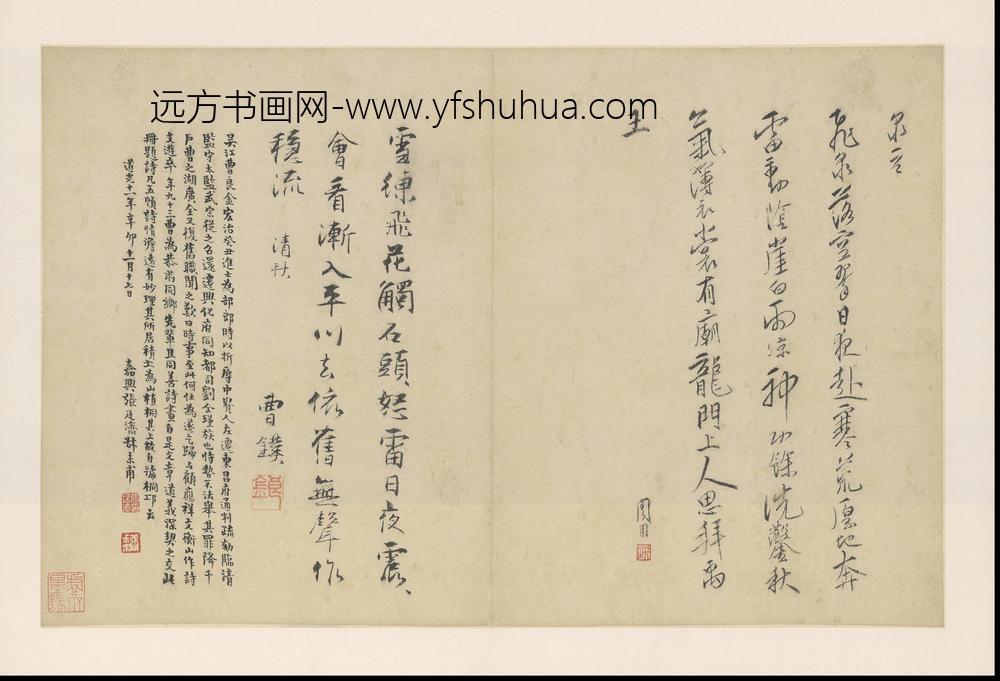 远方书画网-www.yfshuhua.com
飛泉落空翠日夜赴寒荒厚地奔
雷動陰崖白雨涼神功餘洗鑿秋
氣薄衣裳有廟龍門上人思拜禹
王
周用
雪練飛花觸石頭怒雷日夜震
會看漸入平川去依舊無聲作
穩流
清秋
曹鏷
吳江曹良金宏治癸丑進士為部郎時以折辱中貴人左遷東昌府通判疏劾臨清
監守太監武宗從之名還遷興化府同知都司劉全瑾族也恃勢不法舉其罪降千
戶曹之湖廣全又復舊職聞之歎曰時事至此何仕為遂乞歸与顧應祥文衡山作詩
文遊卒年九十三曹為恭肅同鄉先輩且同善詩畫自是文章道義深契之交此
冊題詩凡五幀詩情澹遠有妙理其所居積土為山植桐其上故自號桐邱云
道光十一年辛卯十一月十七日
嘉興張廷濟叔未甫